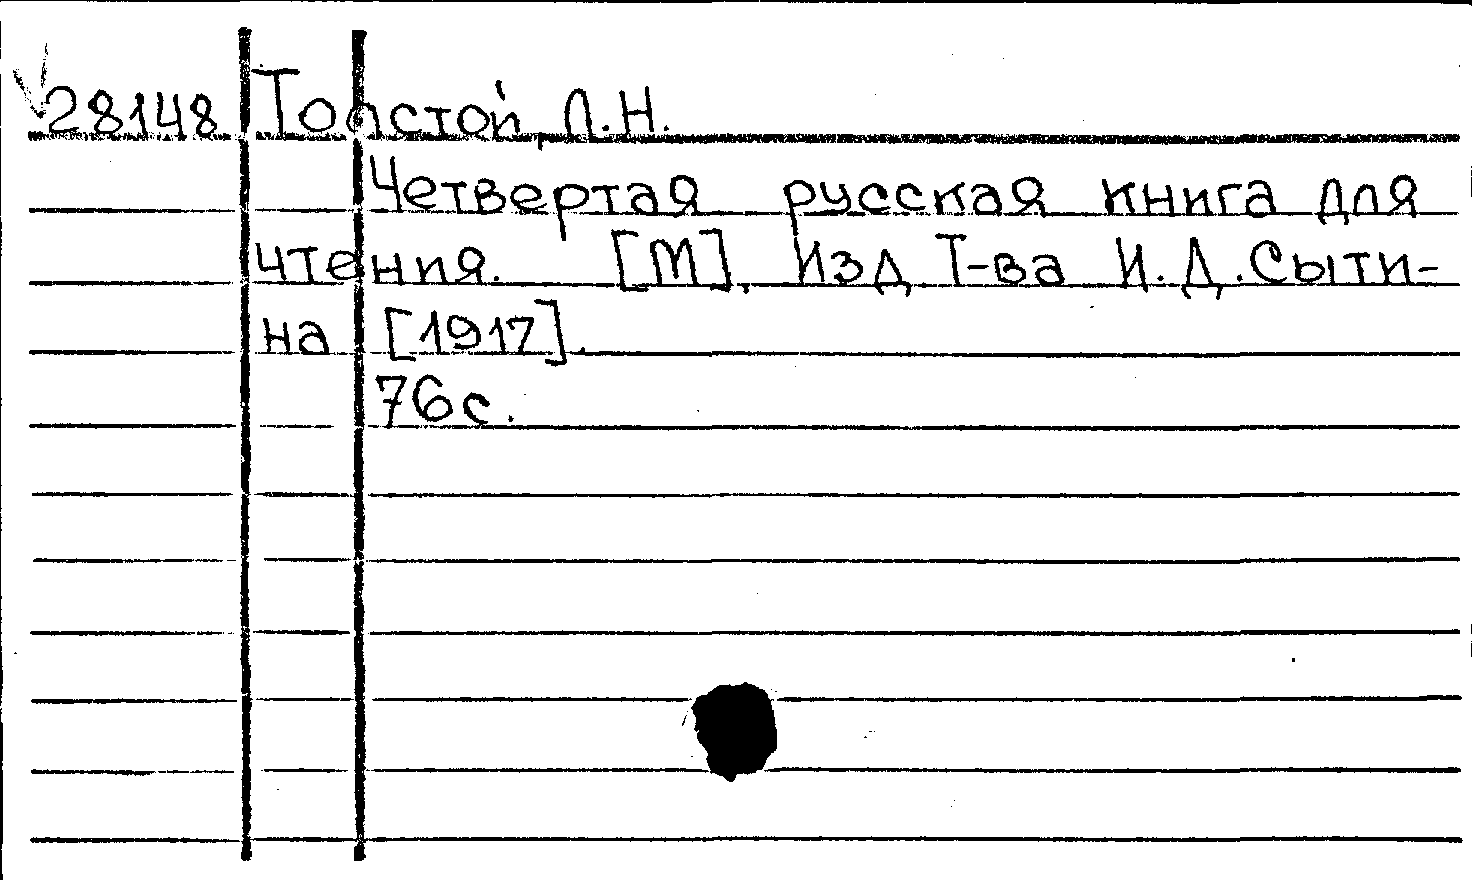 28148 Толстой, Л.Н.
Четвертая русская книга для
чтения. [М], Изд Т-ва И.Д.Сыти-
на [1917].
76с.